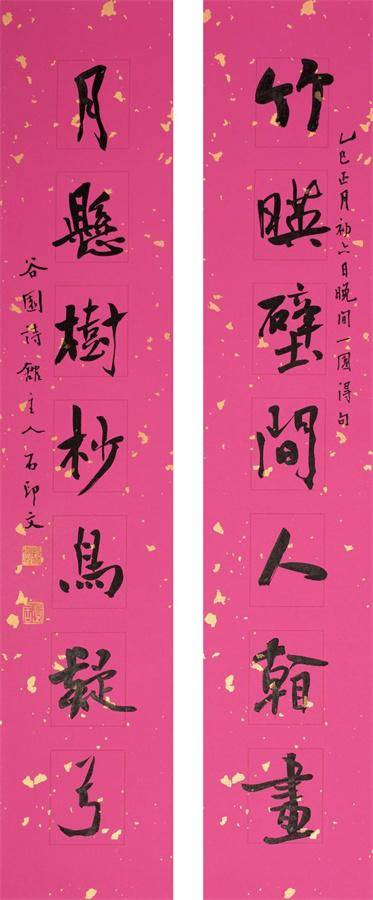 乙巳正月初六日晚間一園得句
竹暎壁間人翰畫
月懸樹杪鳥疑弓
谷園詩館主人石印文